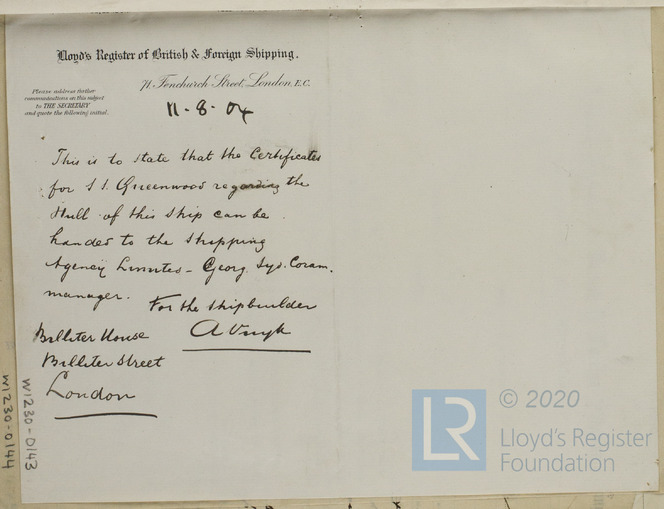 Lloyd's Register of British & Foreign Shipping.
71, Fenchurch Street, London, E.C.
Please address further
communications on this subject
to THE SECRETARY
and quote the following initial.
11-8-04
This is to state that the Certificates
for S S. Greenwood regarding the
Hull of this ship can be
handed to the Shipping
Agency - Georg.
manager.
For the shipbuilder
Billiter House
Billiter Street
London
W1230-0143
W1230-0144
LR
© 2020
Lloyd's Register
Foundation